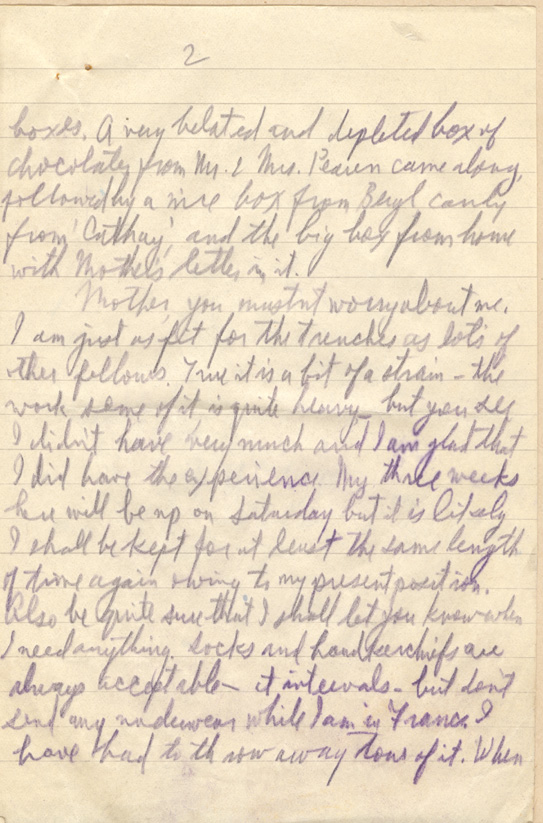 2
boxes. A very belated and depleted box of
chocolates from Mr. & Mrs. came along,
followed by a nice box from Beryl candy
from 'Cathay', and the big box from home
with Mother's letter in it.
Mother, you mustnt worry about me.
I am just as fit for the trenches as lots of
other fellows. True it is a bit of a strain - the
work some of it is quite heavy - but you see
I didn't have very much and I am glad that
I did have the experience. My three weeks
here will be up on Saturday but it is likely
I shall be kept for at least the same length
of time again owing to my present position.
Also be quite sure that I shall let you know when
I need anything. Socks and handkerchiefs are
always acceptable - at intervals - but don't
send any underwear while I am in France. I
have had to throw away tons of it. When